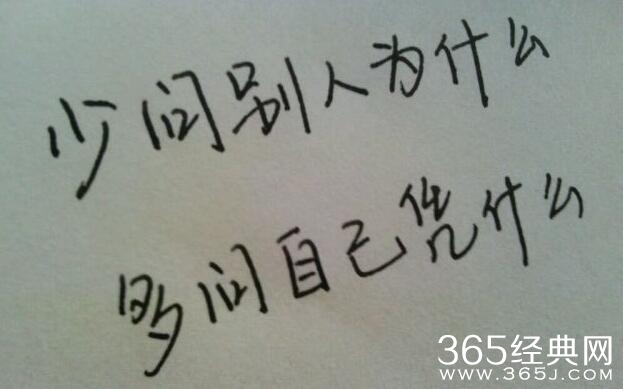 少问别人为什么
多问自己凭什么
365经典网
www.365J.com